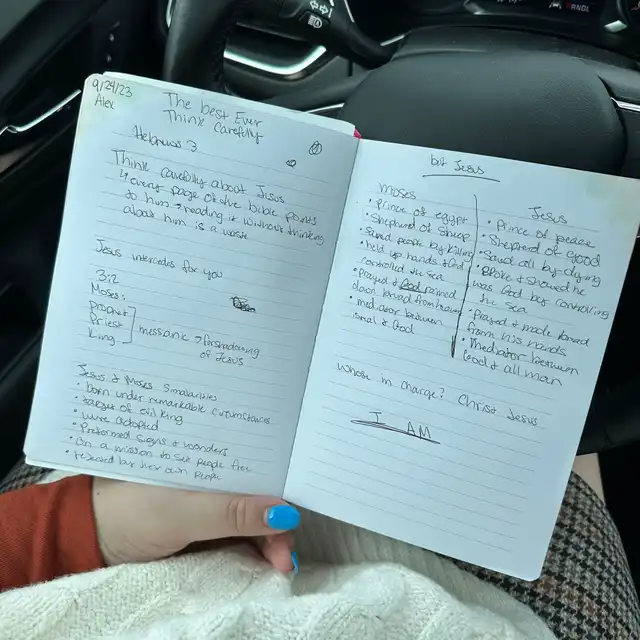 9/24/23
Alex
The best Ever
Think Carefully
Hebrews 3
Think carefully about Jesus
every page of the bible points
to him → reading it without thinking
about him is a waste
Jesus intercedes for you
3:2
Moses:
prophet
priest
king
messianic → foreshadowing
of Jesus
Jesus & Moses Similarities
• born under remarkable circumstances
• savage of evil king
• were adopted
• preformed signs & wonders
• on a mission to set people free
• rejected by her own people
but Jesus
Moses
• Prince of egypt
• Shepherd of Sheep
• Saved people by killing
• held up hands & God
controlled the sea
• Prayed & God rained
down bread from heaven
• mediator between
& God
Jesus
• Prince of peace
• Shepherd of good
• Saved all by dying
• Spoke & showed he
was God by controlling
the sea
• prayed & made bread
from his hands
• Mediator between
God & all man
Whose in charge? Christ Jesus
I AM
BRNDL